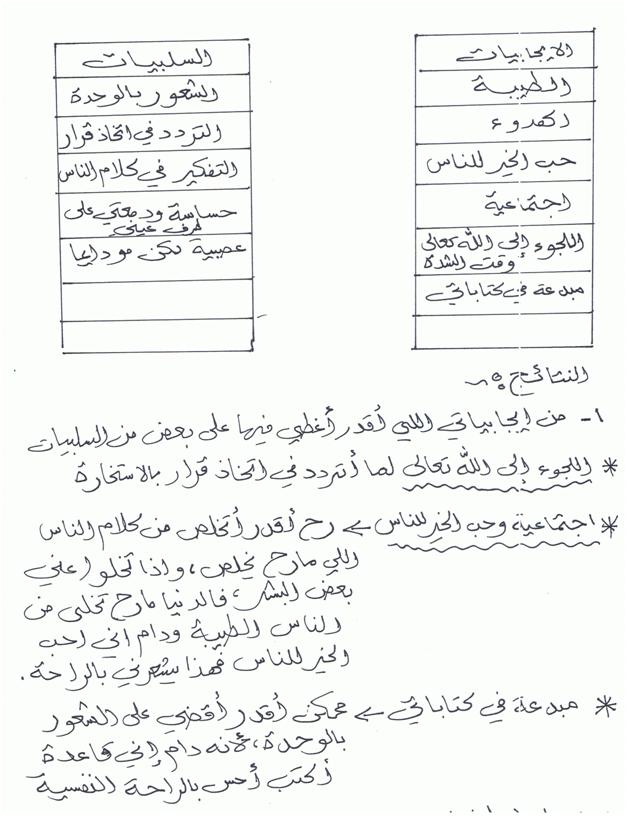 الايجابيات
الطيبة
الهدوء
حب الخير للناس
اجتماعية
اللجوء إلى الله تعالى
وقت الشدة
مبدعة في كتاباتي
السلبيات
الشعور بالوحدة
التردد في اتخاذ قرار
التفكير في كلام الناس
حساسة ودمعتي على
طرف عيني
عصبية لكن مو دايما
النتائج :~
١- من إيجابياتي اللي أقدر أغطي فيها على بعض من السلبيات
* اللجوء إلى الله تعالى لما أتردد في اتخاذ قرار بالاستخارة
* اجتماعية وحب الخير للناس ← رح أقدر أتخلص من كلام الناس
اللي مارح يخلص، واذا تخلوا عني
بعض البشر، فالدنيا مارح تخلى من
الناس الطيبة ودام اني احب
الخير للناس فهذا يشعرني بالراحة.
* مبدعة في كتاباتي ← ممكن أقدر أقضي على الشعور
بالوحدة، لأنه دام إني قاعدة
أكتب أحس بالراحة النفسية